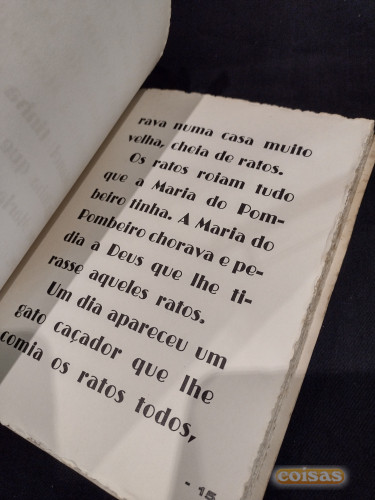 rava numa casa muito
velha, cheia de ratos.
Os ratos roíam tudo
que a Maria do Pom-
beiro tinha. A Maria do
Pombeiro chorava e pe-
dia a Deus que lhe ti-
rasse aqueles ratos.
Um dia apareceu um
gato caçador que lhe
comia os ratos todos,
- 15
coisas